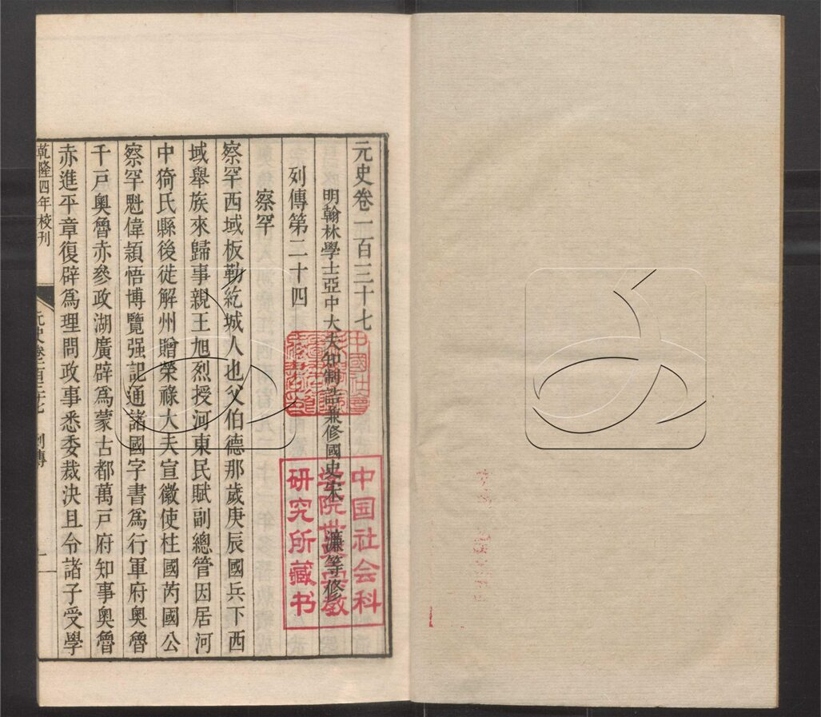 元史卷一百三十七
明翰林學士亞中大夫知制誥兼修國史宋 濂等修
列傳第二十四
察罕
察罕西域板勒紇城人也父伯德那歲庚辰國兵下西
域舉族來歸事親王旭烈授河東民賦副總管因居河
中猗氏縣後徙解州贈榮祿大夫宣徽使柱國芮國公
察罕魁偉穎悟博覽强記通諸國字書爲行軍府奧魯
千戶奧魯赤參政湖廣辟爲蒙古都萬戶府知事奧魯
赤進平章復辟爲理問政事悉委裁決且令諸子受學
乾隆四年校刊
元史卷一百三十七 列傳 一
中国社会科
学院世界宗教
研究所藏书